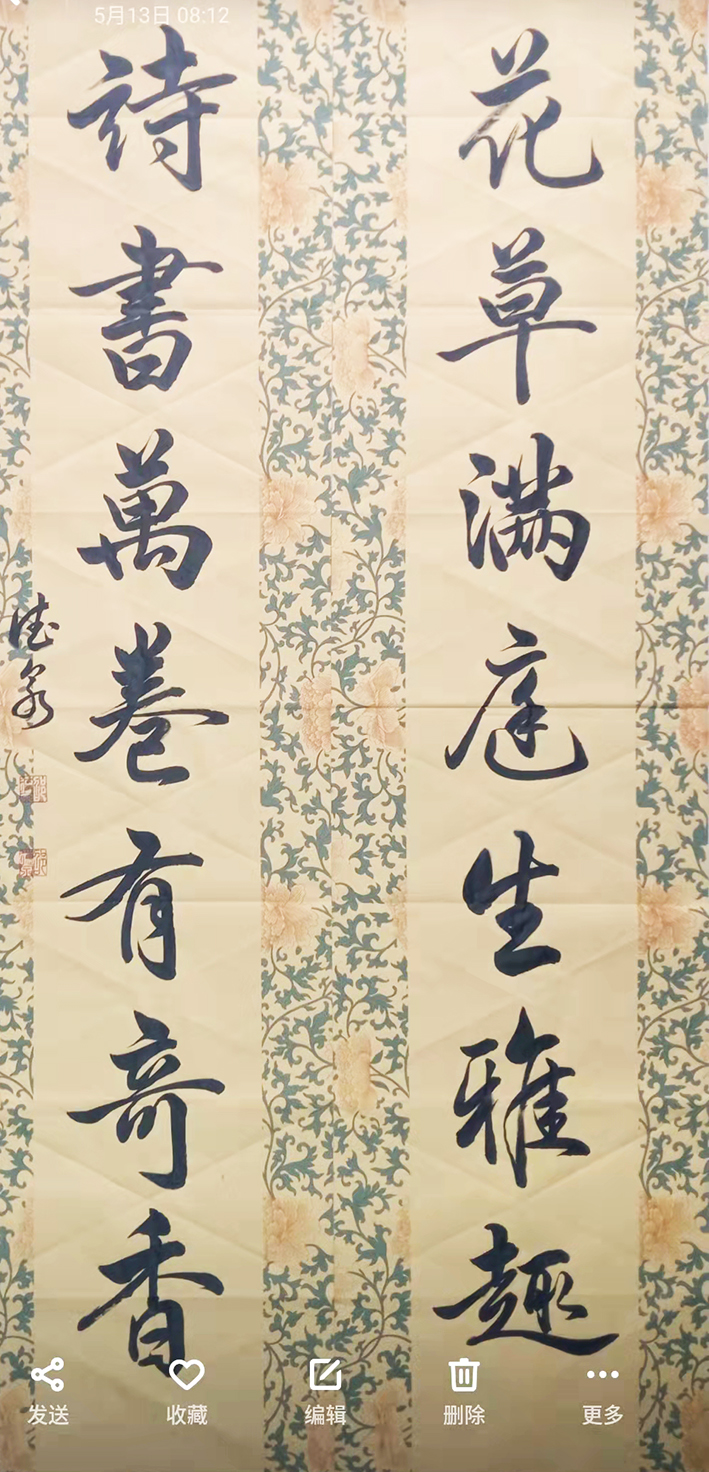 5月13日 08:12
花草满庭生雅趣
詩書萬卷有奇香
德泉
发送 收藏 编辑 删除 更多